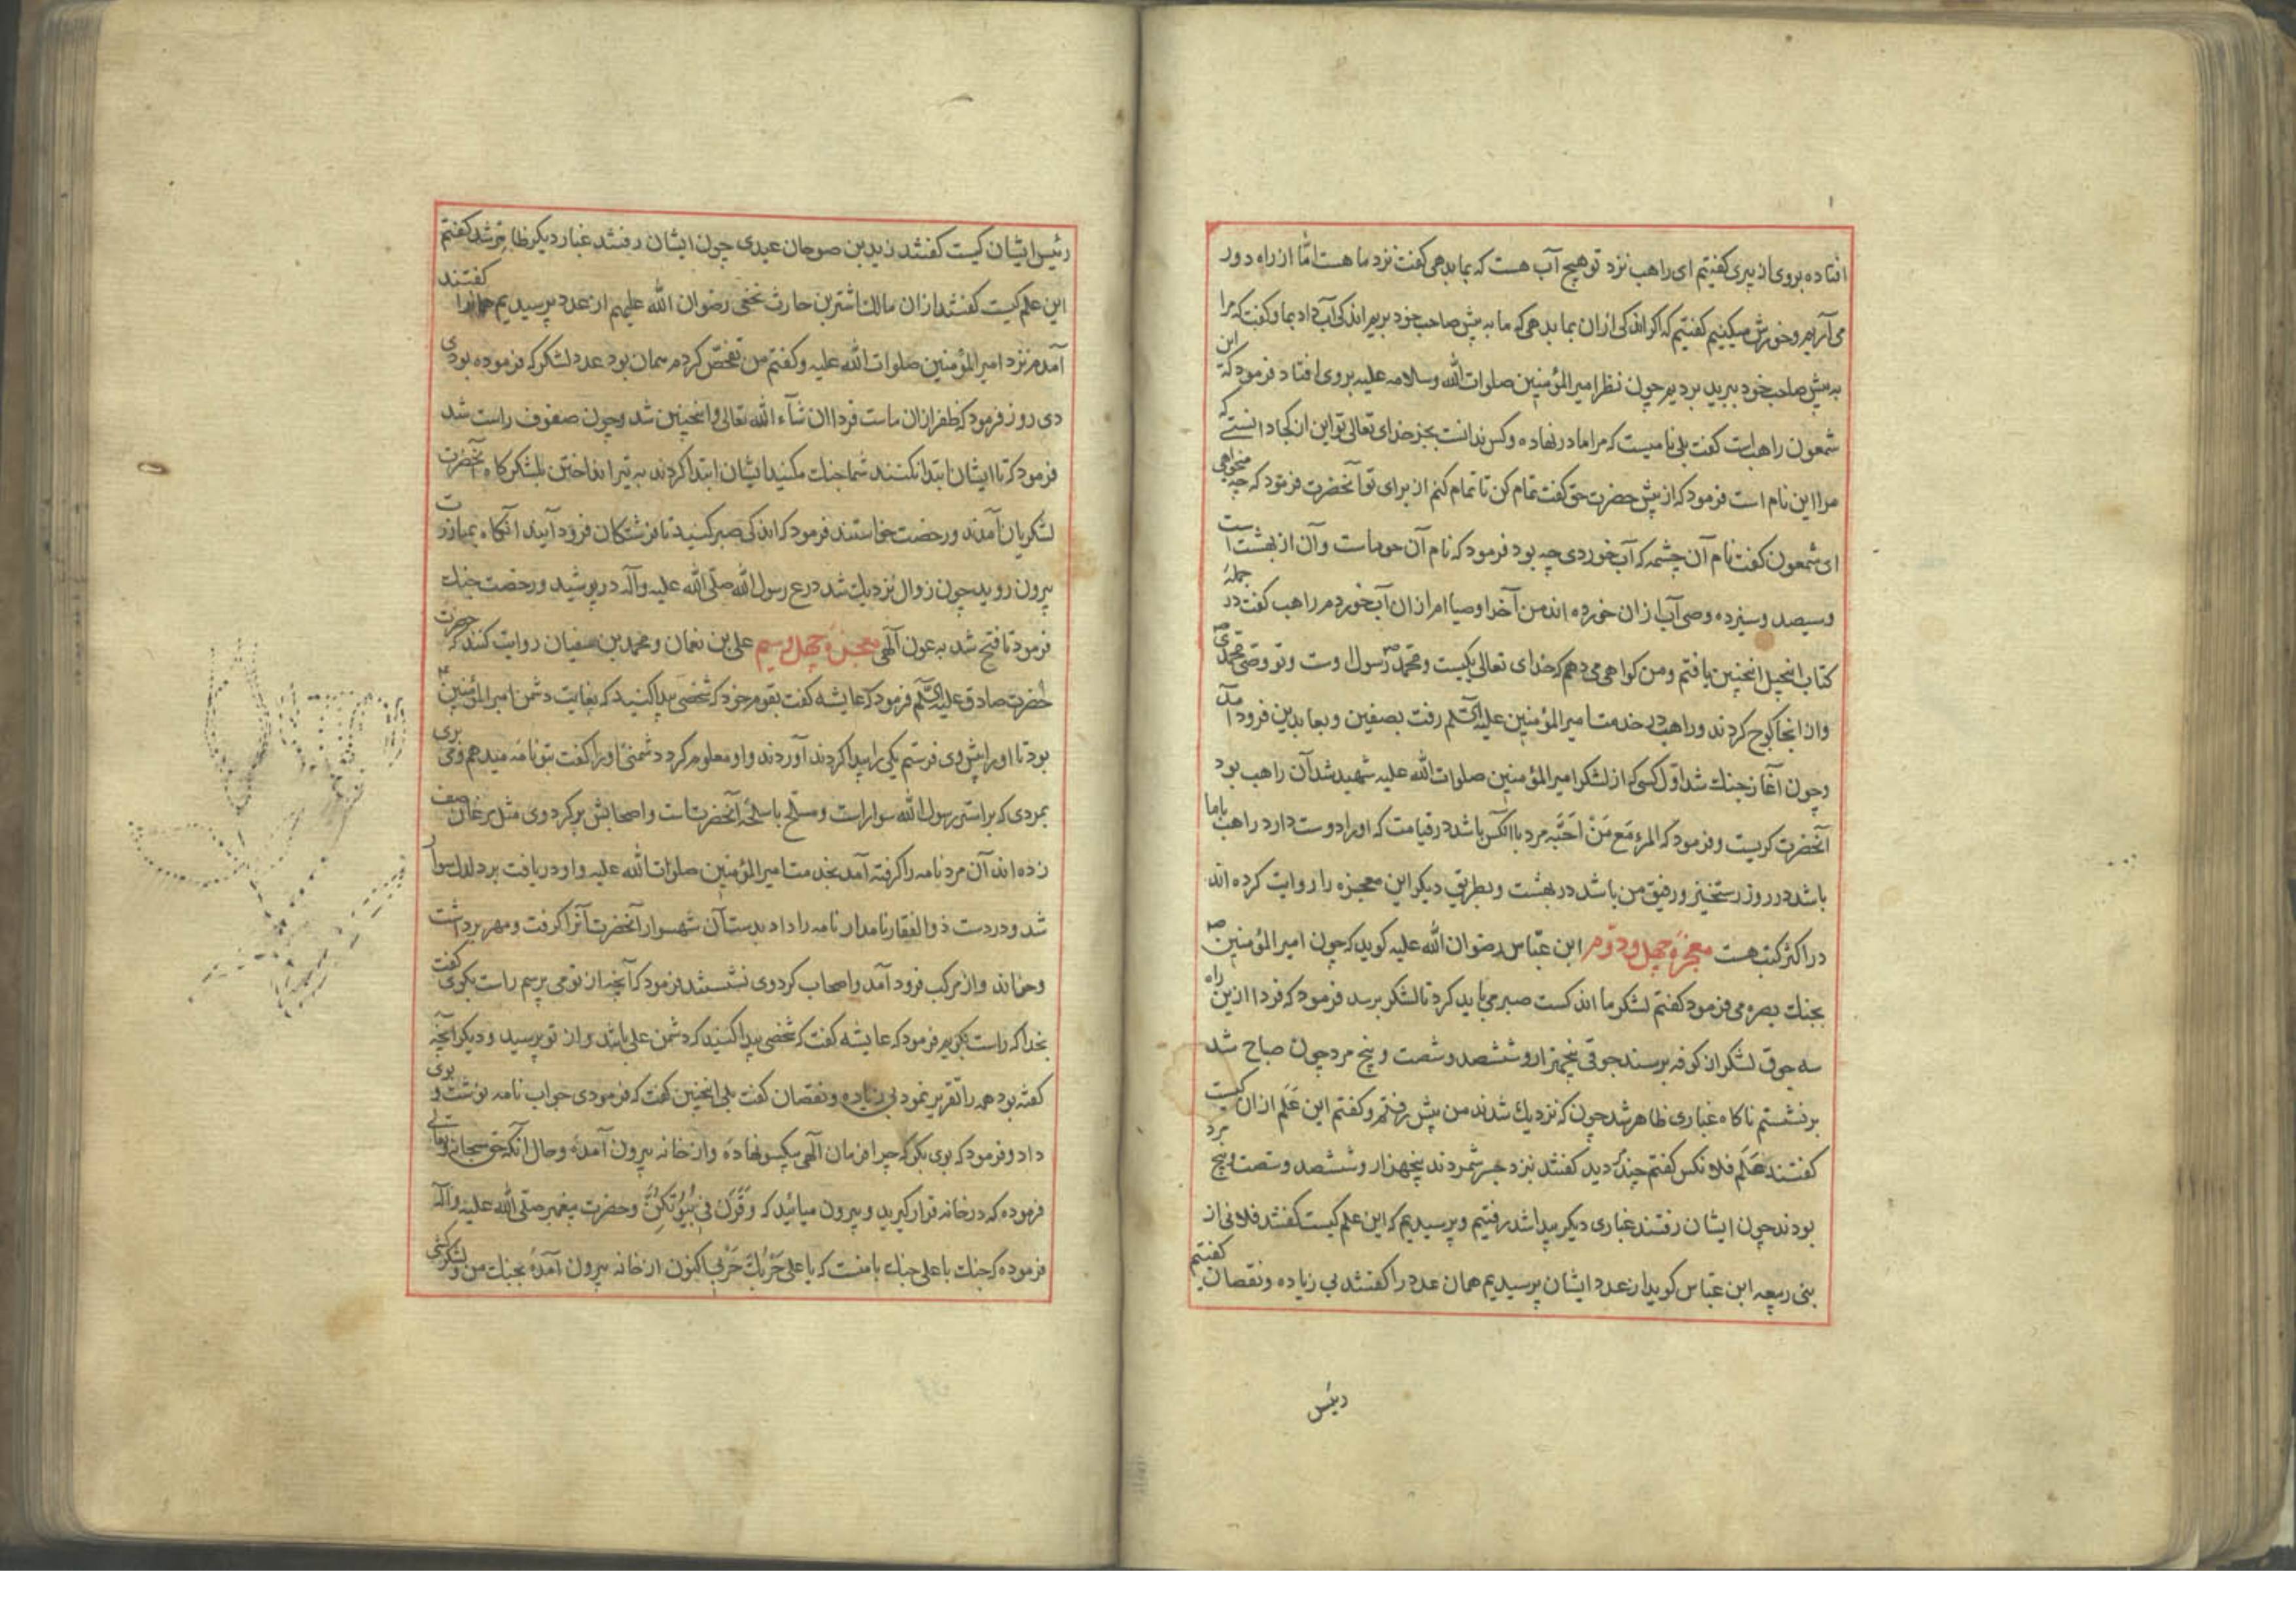 افتاده بروی از پیری کفتیم ای راهب نزد تو هیچ آب هست که بما بدهی کفت نزد ما هست امّا از راه دور
می آریم و خورش میکنیم کفتیم که اکر اندکی ازان بما بدهی که ما به پیش صاحب خود بریم اندکی آب داد بما و کفت که مرا
به پیش صاحب خود ببرید بردیم چون نظر امیر المؤمنین صلوات الله وسلامه علیه بروی افتاد فرمود که این
شمعون راهبست کفت بلی نامیست که مرا مادر نهاده و کس ندانست بجز خدای تعالی تو این از کجا دانستی که
مرا این نام است فرمود که از پیش حضرت حق کفت تمام کن تا تمام کنم از برای تو آنحضرت فرمود که چه میخواهی
ای شمعون کفت نام آن چشمه که آب خوردی چه بود فرمود که نام آن حوماست وآن از بهشت است
وسیصد وسیزده وصی آب ازان خورده اند من آخر اوصیاام ازان آب خوردم راهب کفت در جملهٔ
کتاب انجیل انچنین یافتم ومن کواهی می دهم که خدای تعالی یکیست ومحمّدص رسول اوست وتو وصی محمّدیص
واز انجا کوچ کردند وراهب در خدمت امیر المؤمنین علیه السّلم رفت بصفین وبعابدین فرود آمد
وچون آغاز جنك شد اوّل کسی که از لشکر امیر المؤمنین صلوات الله علیه شهید شد آن راهب بود
آنحضرت کریست وفرمود که المرء مَع مَنْ اَحَبَّه مرد باانکس باشد در قیامت که اورا دوست دارد راهب باما
باشد در روز رستخیز ورفیق من باشد در بهشت وبطریق دیکر این معجزه را روایت کرده اند
در اکثر کتب هست معجزهٔ چهل ودوّم ابن عبّاس رضوان الله علیه کوید که چون امیر المؤمنینص
بجنك بصره می فرمود کفتم لشکر ما اندکست صبر می باید کرد تا لشکر برسد فرمود که فردا ازین راه
سه جوق لشکر از کوفه برسند جوقی پنجهزار وششصد وشصت وپنج مرد چون صباح شد
برنشستم ناکاه غباری ظاهر شد چون که نزدیك شدند من پیش رفتم وکفتم این عَلَم ازان کیست
کفتند عَلَم فلانکس کفتم چند کردید کفتند نزد جسر شمردند پنجهزار وششصد وشصت وپنج مرد
بودند چون ایشان رفتند غباری دیکر پیدا شد رفتیم وپرسیدیم که این علم کیست کفتند فلانی از
بنی ربیعه ابن عبّاس کوید از عدد ایشان پرسیدیم همان عدد را کفتند بی زیاده ونقصان کفتیم
رئیس
رئیس ایشان کیست کفتند زید بن صوحان عبدی چون ایشان رفتند غبار دیکر ظاهر شد کفتم
این علم کیست کفتند ازان مالك اشتر بن حارث نخعی رضوان الله علیهم از عدد پرسیدیم همانرا کفتند
آمدم نزد امیر المؤمنین صلوات الله علیه وکفتم من تفحّص کردم همان بود عدد لشکر که فرموده بودی
دی روز فرمود که ظفر ازان ماست فردا ان شآء الله تعالی وانچنین شد وچون صفوف راست شد
فرمود که تا ایشان ابتدا نکنند شما جنك مکنید ایشان ابتدا کردند به تیر انداختن بلشکرکاه آنحضرت
لشکریان آمدند ورخصت خواستند فرمود که اندکی صبر کنید تا فرشتکان فرود آیند انکاه بمبارزت
بیرون روید چون زوال نزدیك شد درع رسول الله صلّی الله علیه وآله در پوشید ورخصت جنك
فرمود تا فتح شد به عون آلهی معجزهٔ چهل وسیم علی بن نعمان ومحمد بن سفیان روایت کنند که حضرت
حضرت صادق علیه السّلم فرمود که عایشه کفت بقوم خود که شخصی پیدا کنید که بغایت دشمن امیر المؤمنین
بود تا اورا پیش وی فرستم یکی را پیدا کردند آوردند واو معلوم کرد دشمنی اورا کفت بتو نامه میدهم ومی بری
بمردی که بر استر رسول الله سوار است ومسلّح باسلحهٔ آنحضرتست واصحابش بر کرد وی مثل مرغان صف
زده اند آن مرد نامه را کرفته آمد بخدمت امیر المؤمنین صلوات الله علیه واو دریافت بر دلدل سوار
شد ودر دست ذوالفقار نامدار نامه را داد بدست آن شهسوار آنحضرت آنرا کرفت ومهر برداشت
وخواند واز مرکب فرود آمد واصحاب کرد وی نشستند فرمود که آنچه از تو می پرسم راست بکوی کفت
بخدا که راست بکویم فرمود که عایشه کفت که شخصی پیدا کنید که دشمن علی باشد واز تو پرسید ودیکر آنچه
کفته بود همه را تقریر نمود بی زیاده ونقصان کفت بلی انچنین کفت که فرمودی جواب نامه نوشت و بوی
داد وفرمود که بوی بکو که چرا فرمان آلهی بیکسو نهادهٔ واز خانه بیرون آمدهٔ وحال آنکه حق سبحانه وتعالی
فرموده که در خانه قرار کیرید وبیرون میائید که وَقَرْنَ فی بُیُوتِکُنَّ وحضرت پیغمبر صلّی الله علیه وآله
فرموده که جنك با علی جنك بامنست که یا علی حَرْبُكَ حَرْبی اکنون از خانه بیرون آمدهٔ بجنك من ولشکرکشی